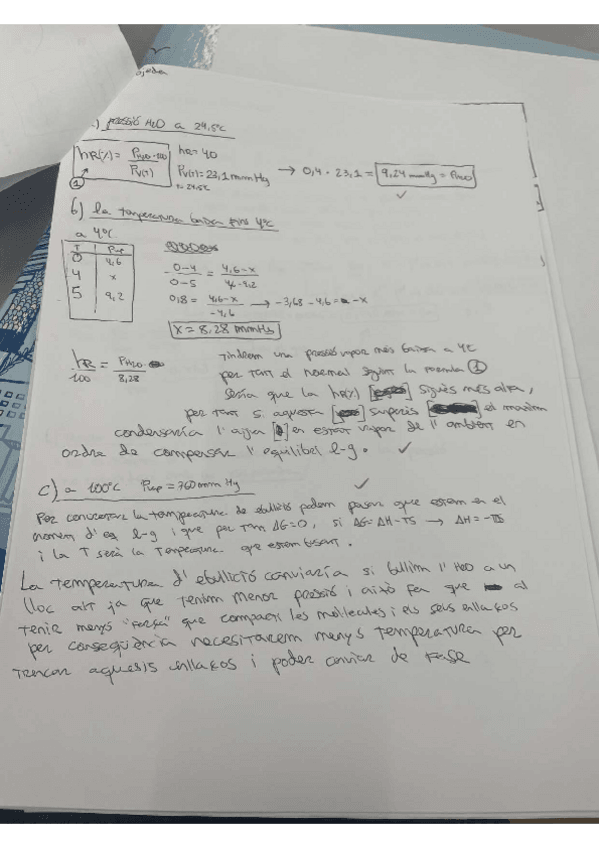 a) pressió H2O a 24,5ºC
hR(%) = PH2O·100 / Pv(T)
hR = 40
Pv(T) = 23,1 mmHg
T = 24,5ºC
→ 0,4 · 23,1 = 9,24 mmHg = PH2O
1
✓
b) la temperatura baixa fins 4ºC
a 4ºC
T | Pvap
0 | 4,6
4 | x
5 | 9,2
0-4 / 0-5 = 4,6-x / 4,6-9,2
0,8 = 4,6-x / -4,6 → -3,68 -4,6 = -x
x = 8,28 mmHg
hR / 100 = PH2O / 8,28
Tindrem una pressió vapor més baixa a 4ºC
per tant el normal segons la formula 1
seria que la hR(%) sigués més alta,
per tant si aquesta superés el maxim
condensaria l'aigua en estat vapor de l'ambient en
ordre de compensar l'equilibri l-g. ✓
c) a 100ºC Pvap = 760 mm Hg ✓
Per coneixer la temperatura de ebullició podem pensar que estem en el
moment d'eq l-g i que per tant ΔG=0, si ΔG=ΔH-TS → ΔH=-TS
i la T serà la Temperatura que estem buscant.
La temperatura d'ebullició canviaria si bullim l'H2O a un
lloc alt ja que tenim menor pressió i això fa que al
tenir menys "força" que compacti les molècules i els seus enllaços
per conseqüència necesitarem menys temperatura per
trencar aquests enllaços i poder canviar de fase